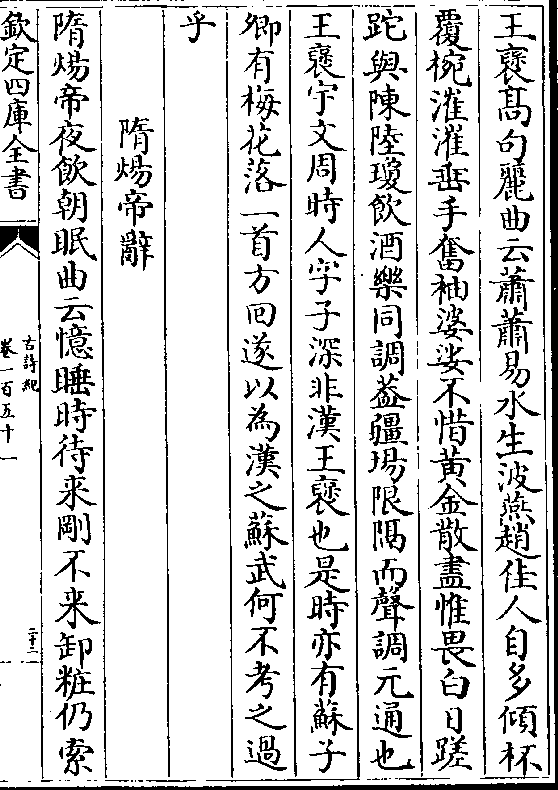 王褒髙句麗曲云蕭蕭易水生波燕趙佳人自多傾杯
覆椀漼漼垂手奮袖婆娑不惜黄金散盡惟畏白日蹉
跎與陳陸瓊飲酒樂同調葢疆埸限隔而聲調元通也
王褒宇文周時人字子深非漢王褒也是時亦有蘇子
卿有梅花落一首方回遂以為漢之蘇武何不考之過
乎
隋煬帝辭
隋煬帝夜飲朝眠曲云憶睡時待来剛不来卸粧仍索
欽定四庫全書
古詩紀
卷一百五十一
二十二